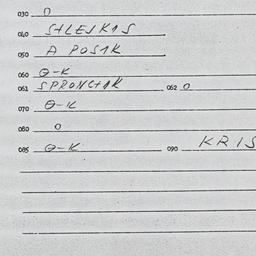 030 0
040 StLESKIS
050 A POSIK
060 θ-K
061 SPRONCtIK 062 0
070 θ-K
080 0
085 θ-K 090 KRIS